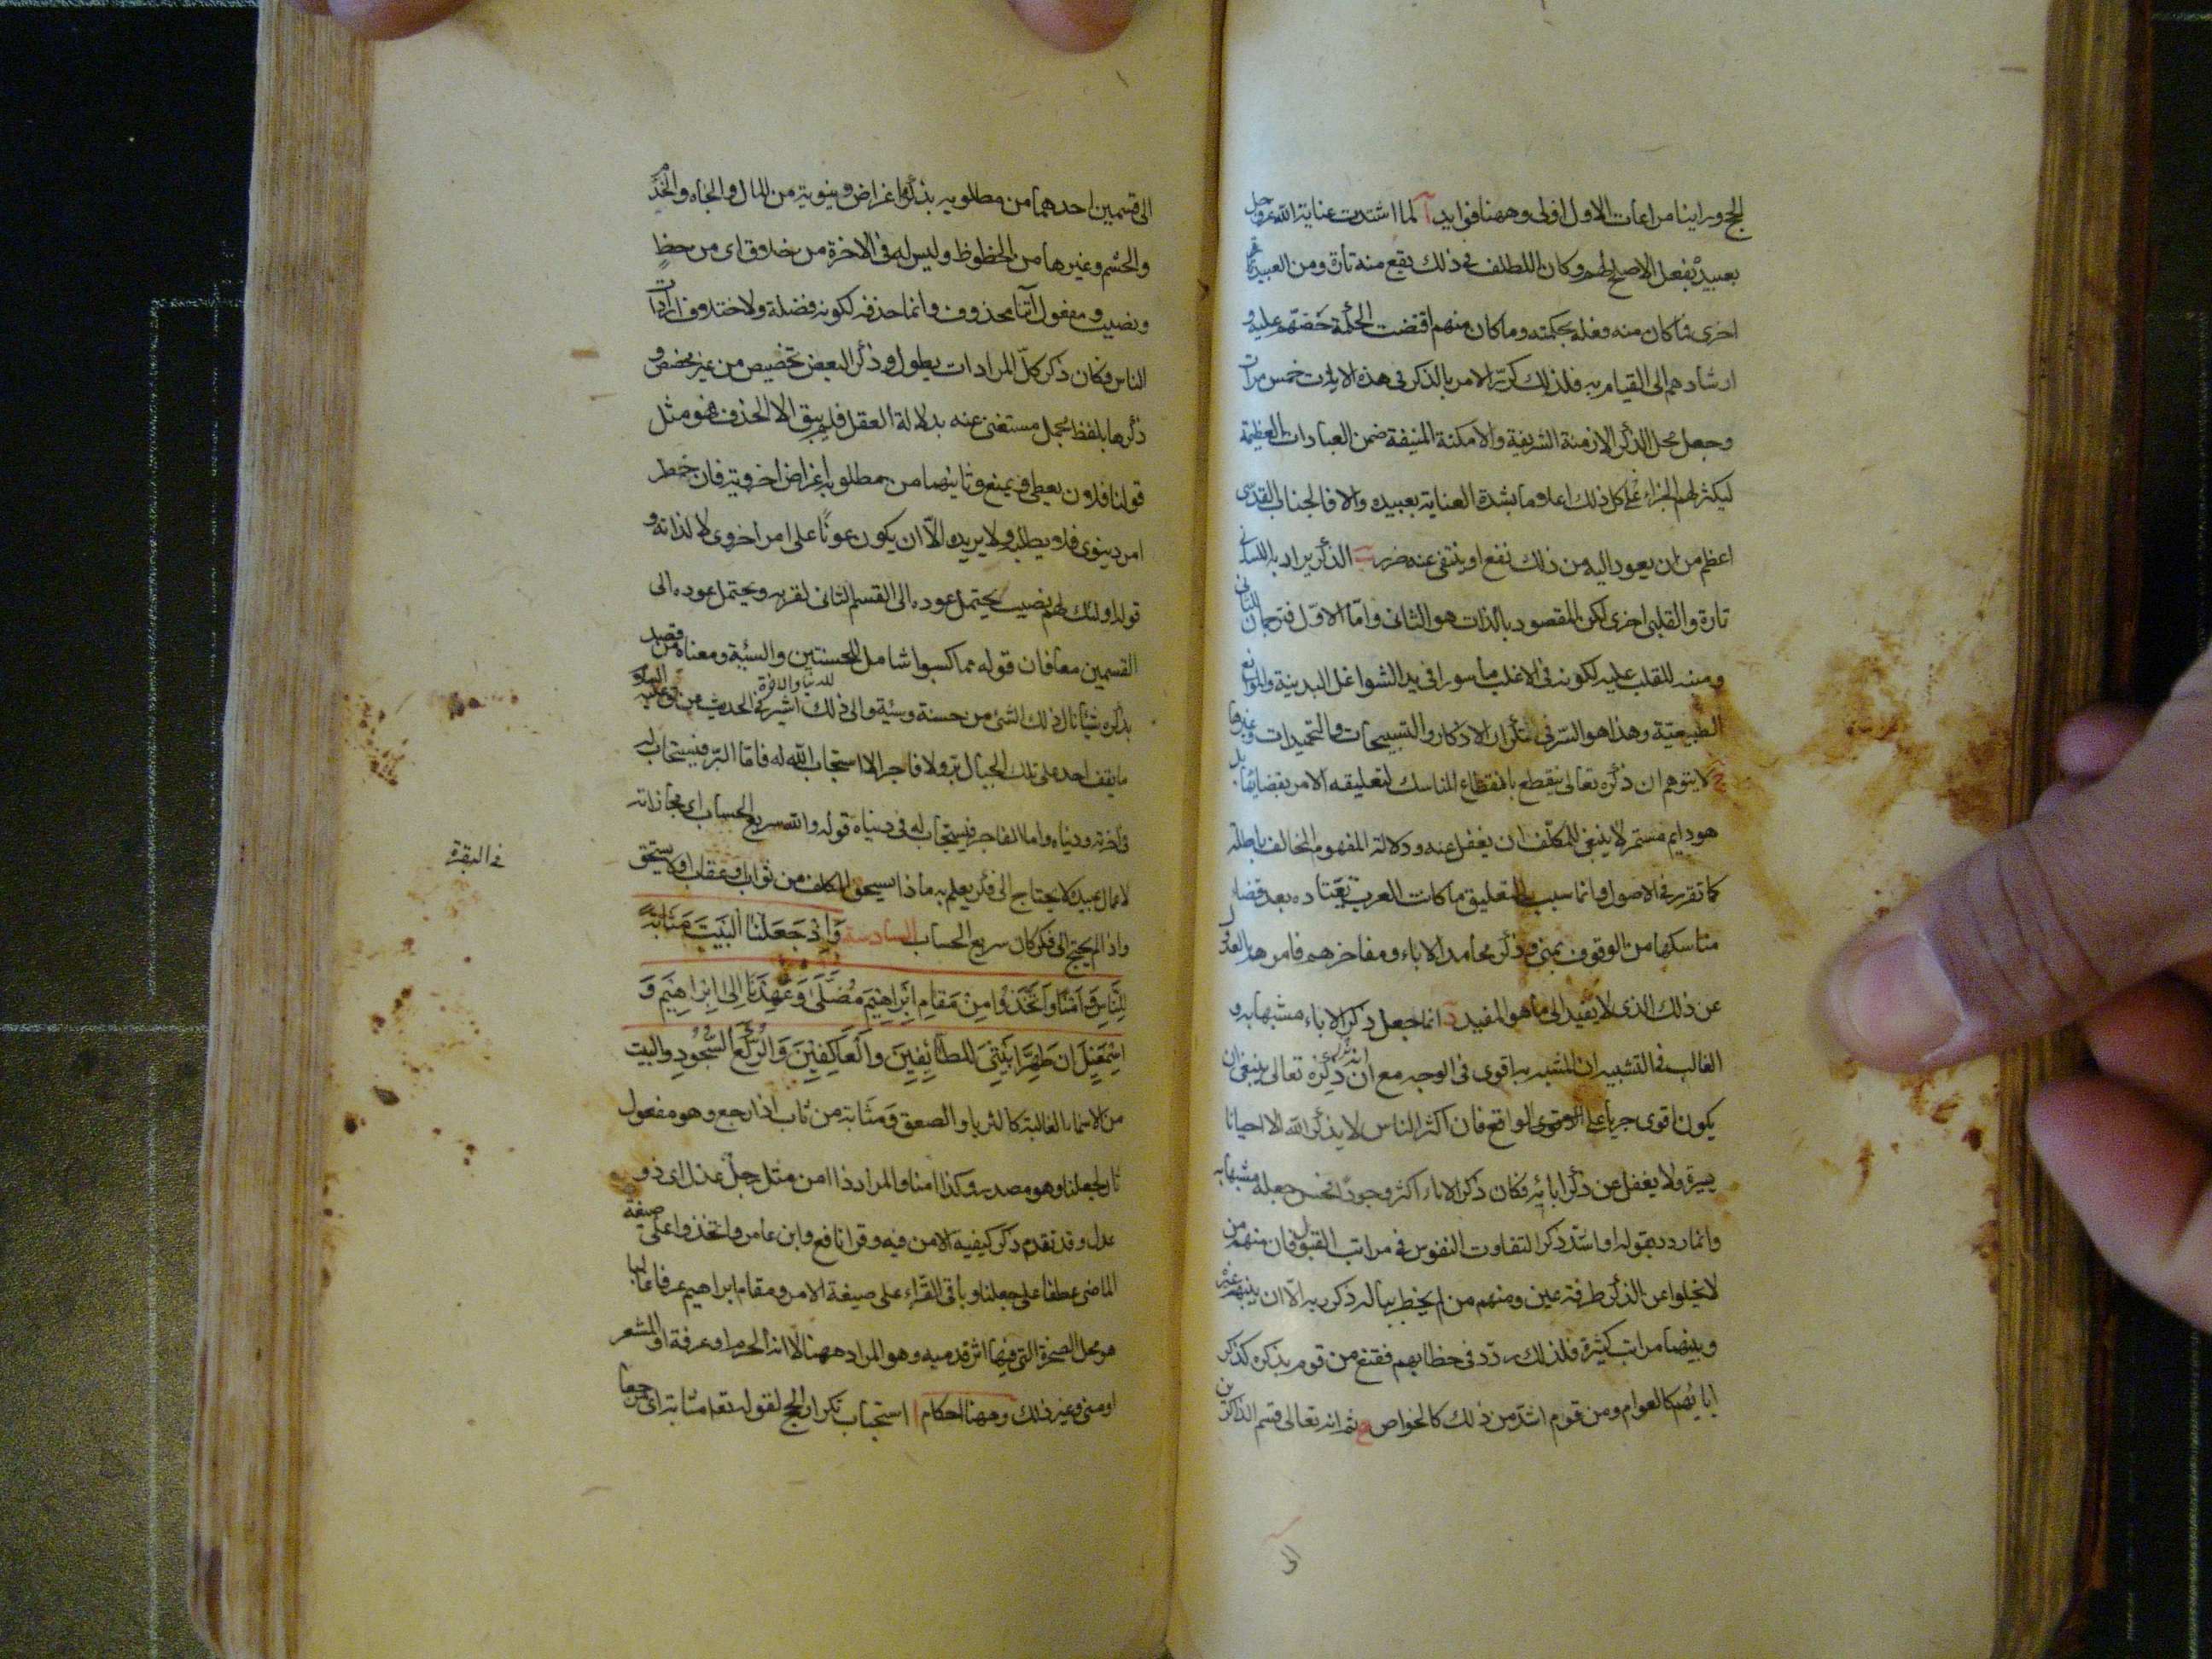 للحج وراينا مراعات الاول اولى وههنا فوايد آ لما اشتدت عناية الله عز وجل
بعبيده بفعل الاصلح لهم وكان اللطف في ذلك يقع منه تارة ومن العبيد
اخرى فما كان منه فعله بحكمته وما كان منهم اقتضت الحكمة حضهم عليه و
ارشادهم الى القيام به فلذلك كرر الامر بالذكر في هذه الايات خمس مرات
وجعل محل الذكر الازمنة الشريفة والامكنة المنيفة ضمن العبادات العظيمة
ليكثر لهم الجزاء على كل ذلك اعلاما بشدة العناية بعبيده والا فالجناب القدسى
اعظم من ان يعود اليه من ذلك نفع او ينتفى عنه ضرر ب الذكر يراد به اللسانى
تارة والقلبى اخرى لكن المقصود بالذات هو الثانى واما الاول فترجمان للثانى
ومنبه للقلب عليه لكونه في الاغلب ماسورا في يد الشواغل البدنية والموانع
الطبيعية وهذا هو السر في تكرار الاذكار والتسبيحات والتحميدات وغيرها
ج لا يتوهم ان ذكره تعالى ينقطع بانقطاع المناسك لتعليقه الامر بقضائها بل
هو دايم مستمر لا ينبغى للمكلف ان يغفل عنه ودلالة المفهوم المخالف باطلة
كما تقرر في الاصول وانما سبب التعليق ما كانت العرب تعتاده بعد قضاء
مناسكها من الوقوف بمنى وذكر محامد الاباء ومفاخرهم فامرهم بالعدول
عن ذلك الذى لا يفيد الى ما هو المفيد د انما جعل ذكر الاباء مشبها به و
الغالب في التشبيه ان المشبه به اقوى في الوجه مع ان ذكره تعالى ينبغى ان
يكون اقوى جريا على الواقع فان اكثر الناس لا يذكر الله الا احيانا
يسيرة ولا يغفل عن ذكر ابائه فكان ذكر الاباء اكثر وجودا فحسن جعله مشبها به
وانما ردد بقوله او اشد ذكرا لتفاوت النفوس في مراتب القبول فان منهم من
لا يخلوا عن الذكر طرفة عين ومنهم من لم يخطر بباله ذكر ربه الا ان ينبهه غيره
وبينهما مراتب كثيرة فلذلك ردد في خطابهم فقنع من قوم بذكره كذكر
ابائهم كالعوام ومن قوم اشد من ذلك كالخواص ه ثم انه تعالى قسم الذاكرين
الى
الى قسمين احدهما من مطلوبه بذكره اغراض دنيوية من المال والجاه والخدم
والحشم وغيرها من الحظوظ وليس له في الاخرة من خلاق اى من حظ
ونصيب ومفعول آتنا محذوف وانما حذفه لكونه فضلة ولاختلاف ارادات
الناس فكان ذكر كل المرادات يطول وذكر البعض تخصيص من غير مخصص و
ذكرها بلفظ مجمل مستغنى عنه بدلالة العقل فلم يبق الا الحذف فهو مثل
قولنا فلان يعطى ويمنع وثانيهما من مطلوبه اغراض اخروية فان خطر
امر دنيوى فلا يطلبه ولا يريده الا ان يكون عونا على امر اخروى لا لذاته و
قوله اولئك لهم نصيب يحتمل عوده الى القسم الثانى لقربه ويحتمل عوده الى
القسمين معا فان قوله مما كسبوا شامل للحسنتين والسيئة ومعناه من قصد
للدنيا والاخرة
بذكره شيئا نال ذلك الشئ من حسنة وسيئة والى ذلك اشير في الحديث عن
ما يقف احد على تلك الجبال بر ولا فاجر الا استجاب الله له فاما البر فيستجاب له
في اخرته ودنياه واما الفاجر فيستجاب له في دنياه قوله والله سريع الحساب اى مجازاته
لاعمال عبيده لا يحتاج الى فكر يعلم به ماذا يستحق المكلف من ثواب او عقاب او لا يستحق
واذا لم يحتج الى فكر كان سريع الحساب السادسة وَاِذْ جَعَلْنَا الْبَيْتَ مَثَابَةً
لِلنَّاسِ وَاَمْنًا وَاتَّخِذُوا مِنْ مَقَامِ اِبْرَاهِيمَ مُصَلًّى وَعَهِدْنَا اِلَى اِبْرَاهِيمَ وَ
اِسْمَعِيلَ اَنْ طَهِّرَا بَيْتِيَ لِلطَّائِفِينَ وَالْعَاكِفِينَ وَالرُّكَّعِ السُّجُودِ والبيت
من الاسماء الغالبة كالثريا والصعق ومثابة من ثاب اذا رجع وهو مفعول
ثان لجعلنا وهو مصدر وكذا امنا والمراد ذا امن مثل رجل عدل اى ذو
عدل وقد تقدم ذكر كيفية الامن فيه وقرا نافع وابن عامر واتخذوا على صيغة
الماضى عطفا على جعلنا وباقى القراء على صيغة الامر ومقام ابراهيم عرفا
هو محل الصخرة التى فيها اثر قدميه وهو المراد ههنا لا انه الحرم او عرفة او المشعر
او منى وغير ذلك وههنا احكام ا استحباب تكرار الحج لقوله تعا مثابة اى مرجعا
في البقرة